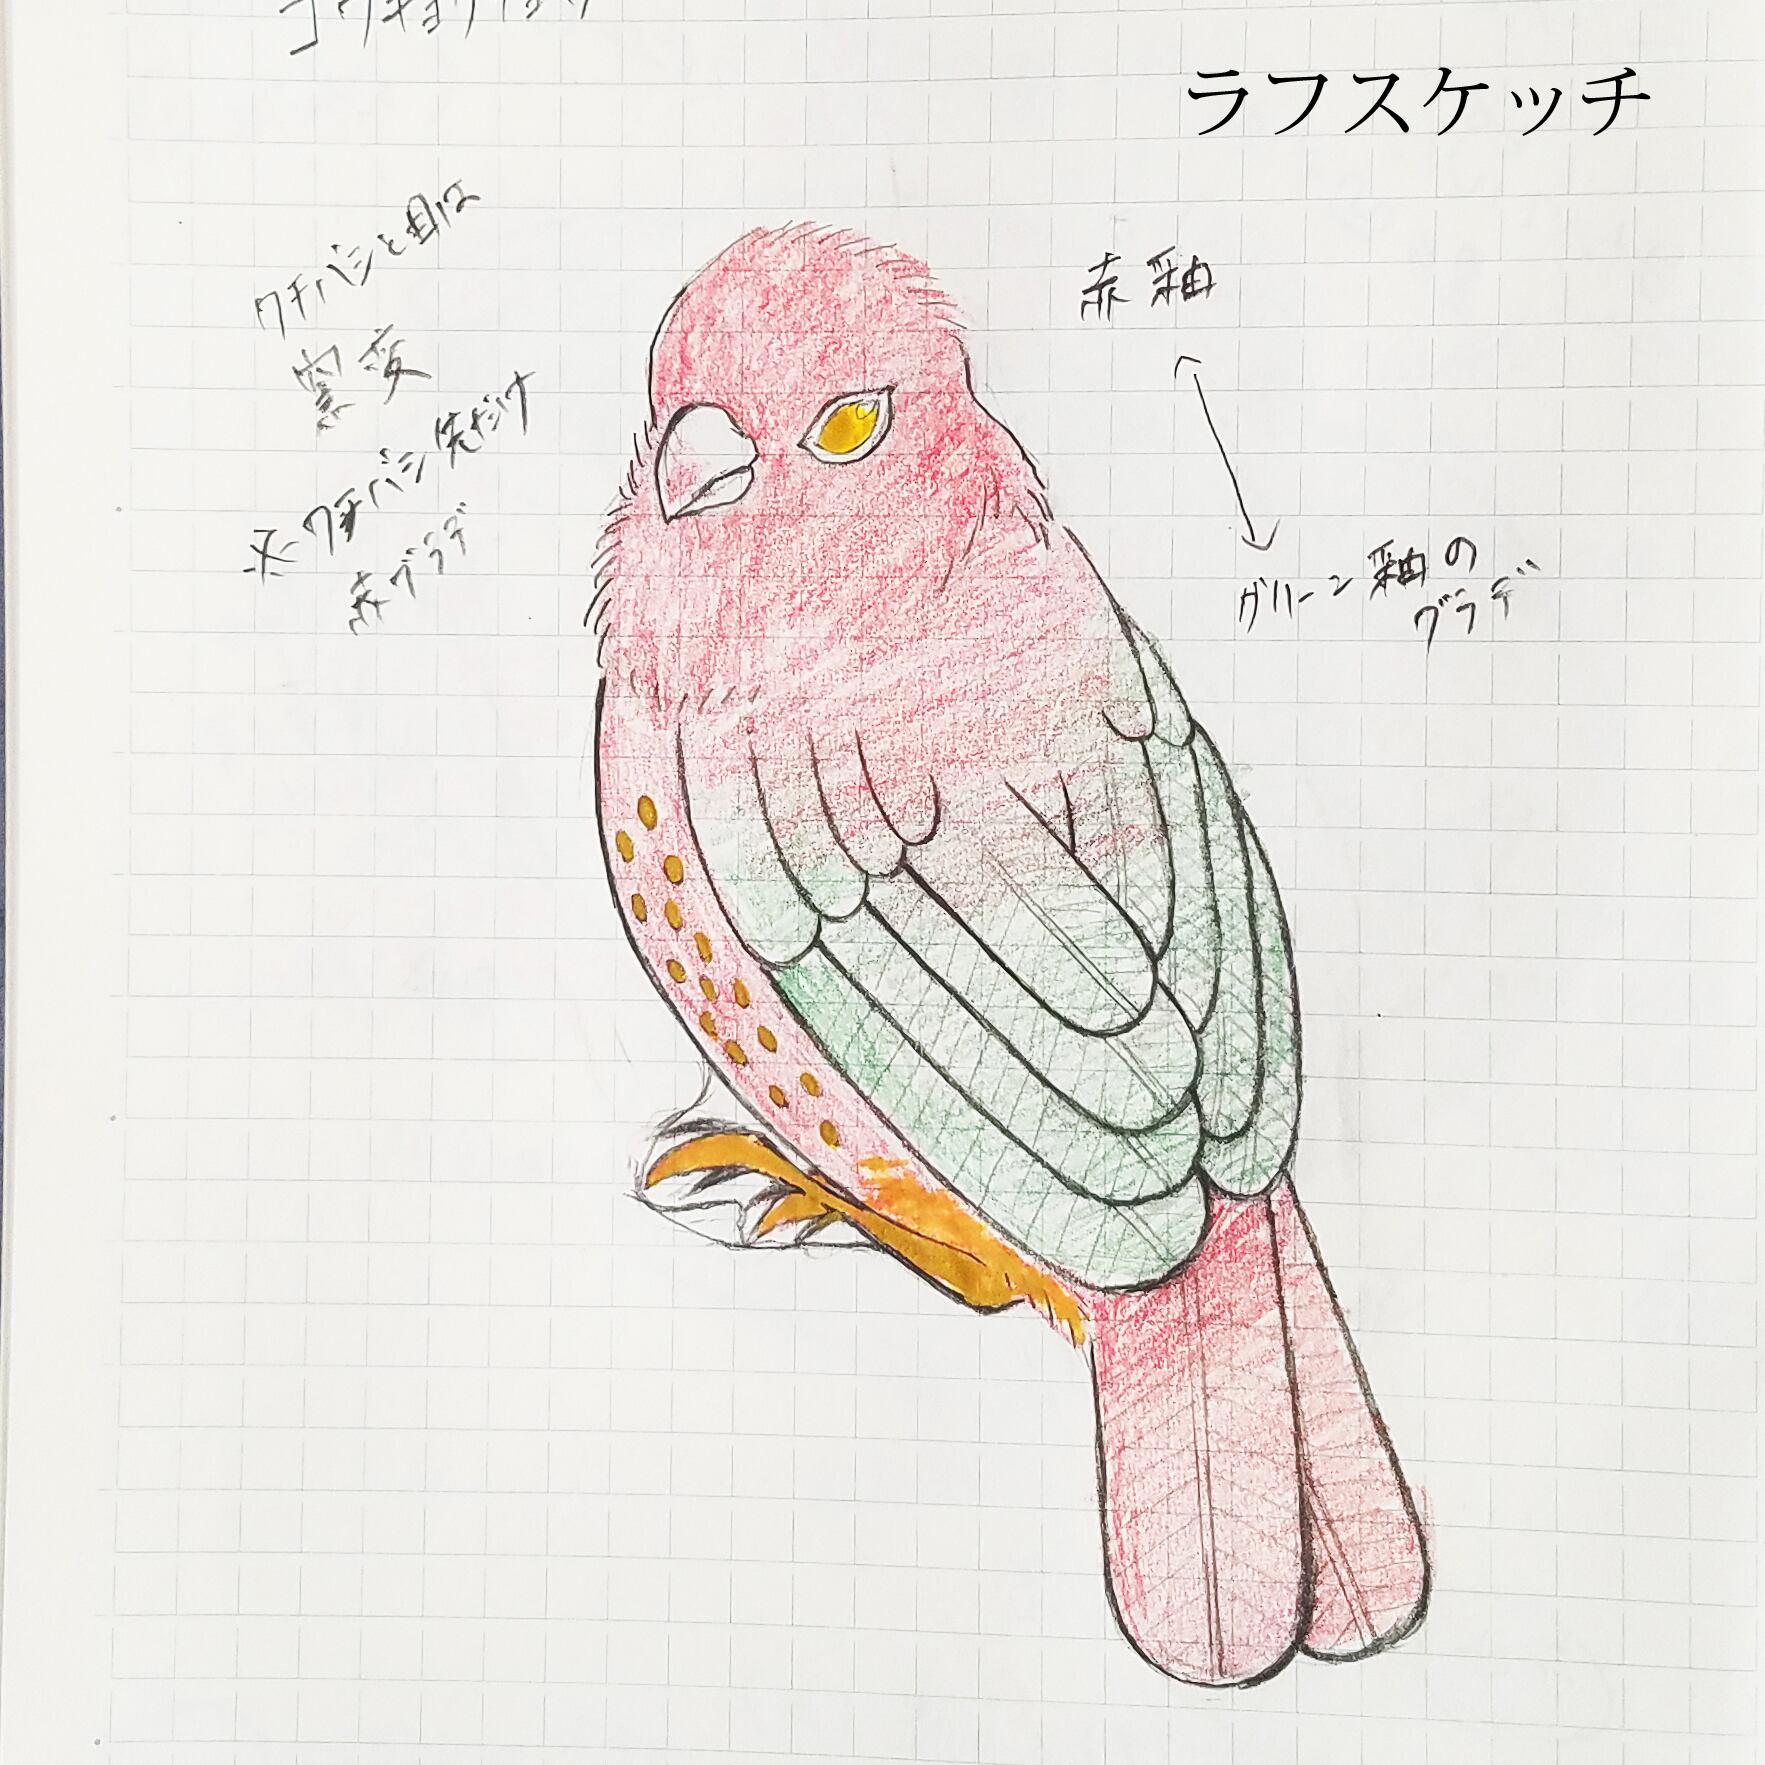 ラフスケッチ
クチバシと目は
窯変
※クチバシ先だけ
赤グラデ
赤釉
グリーン釉の
グラデ